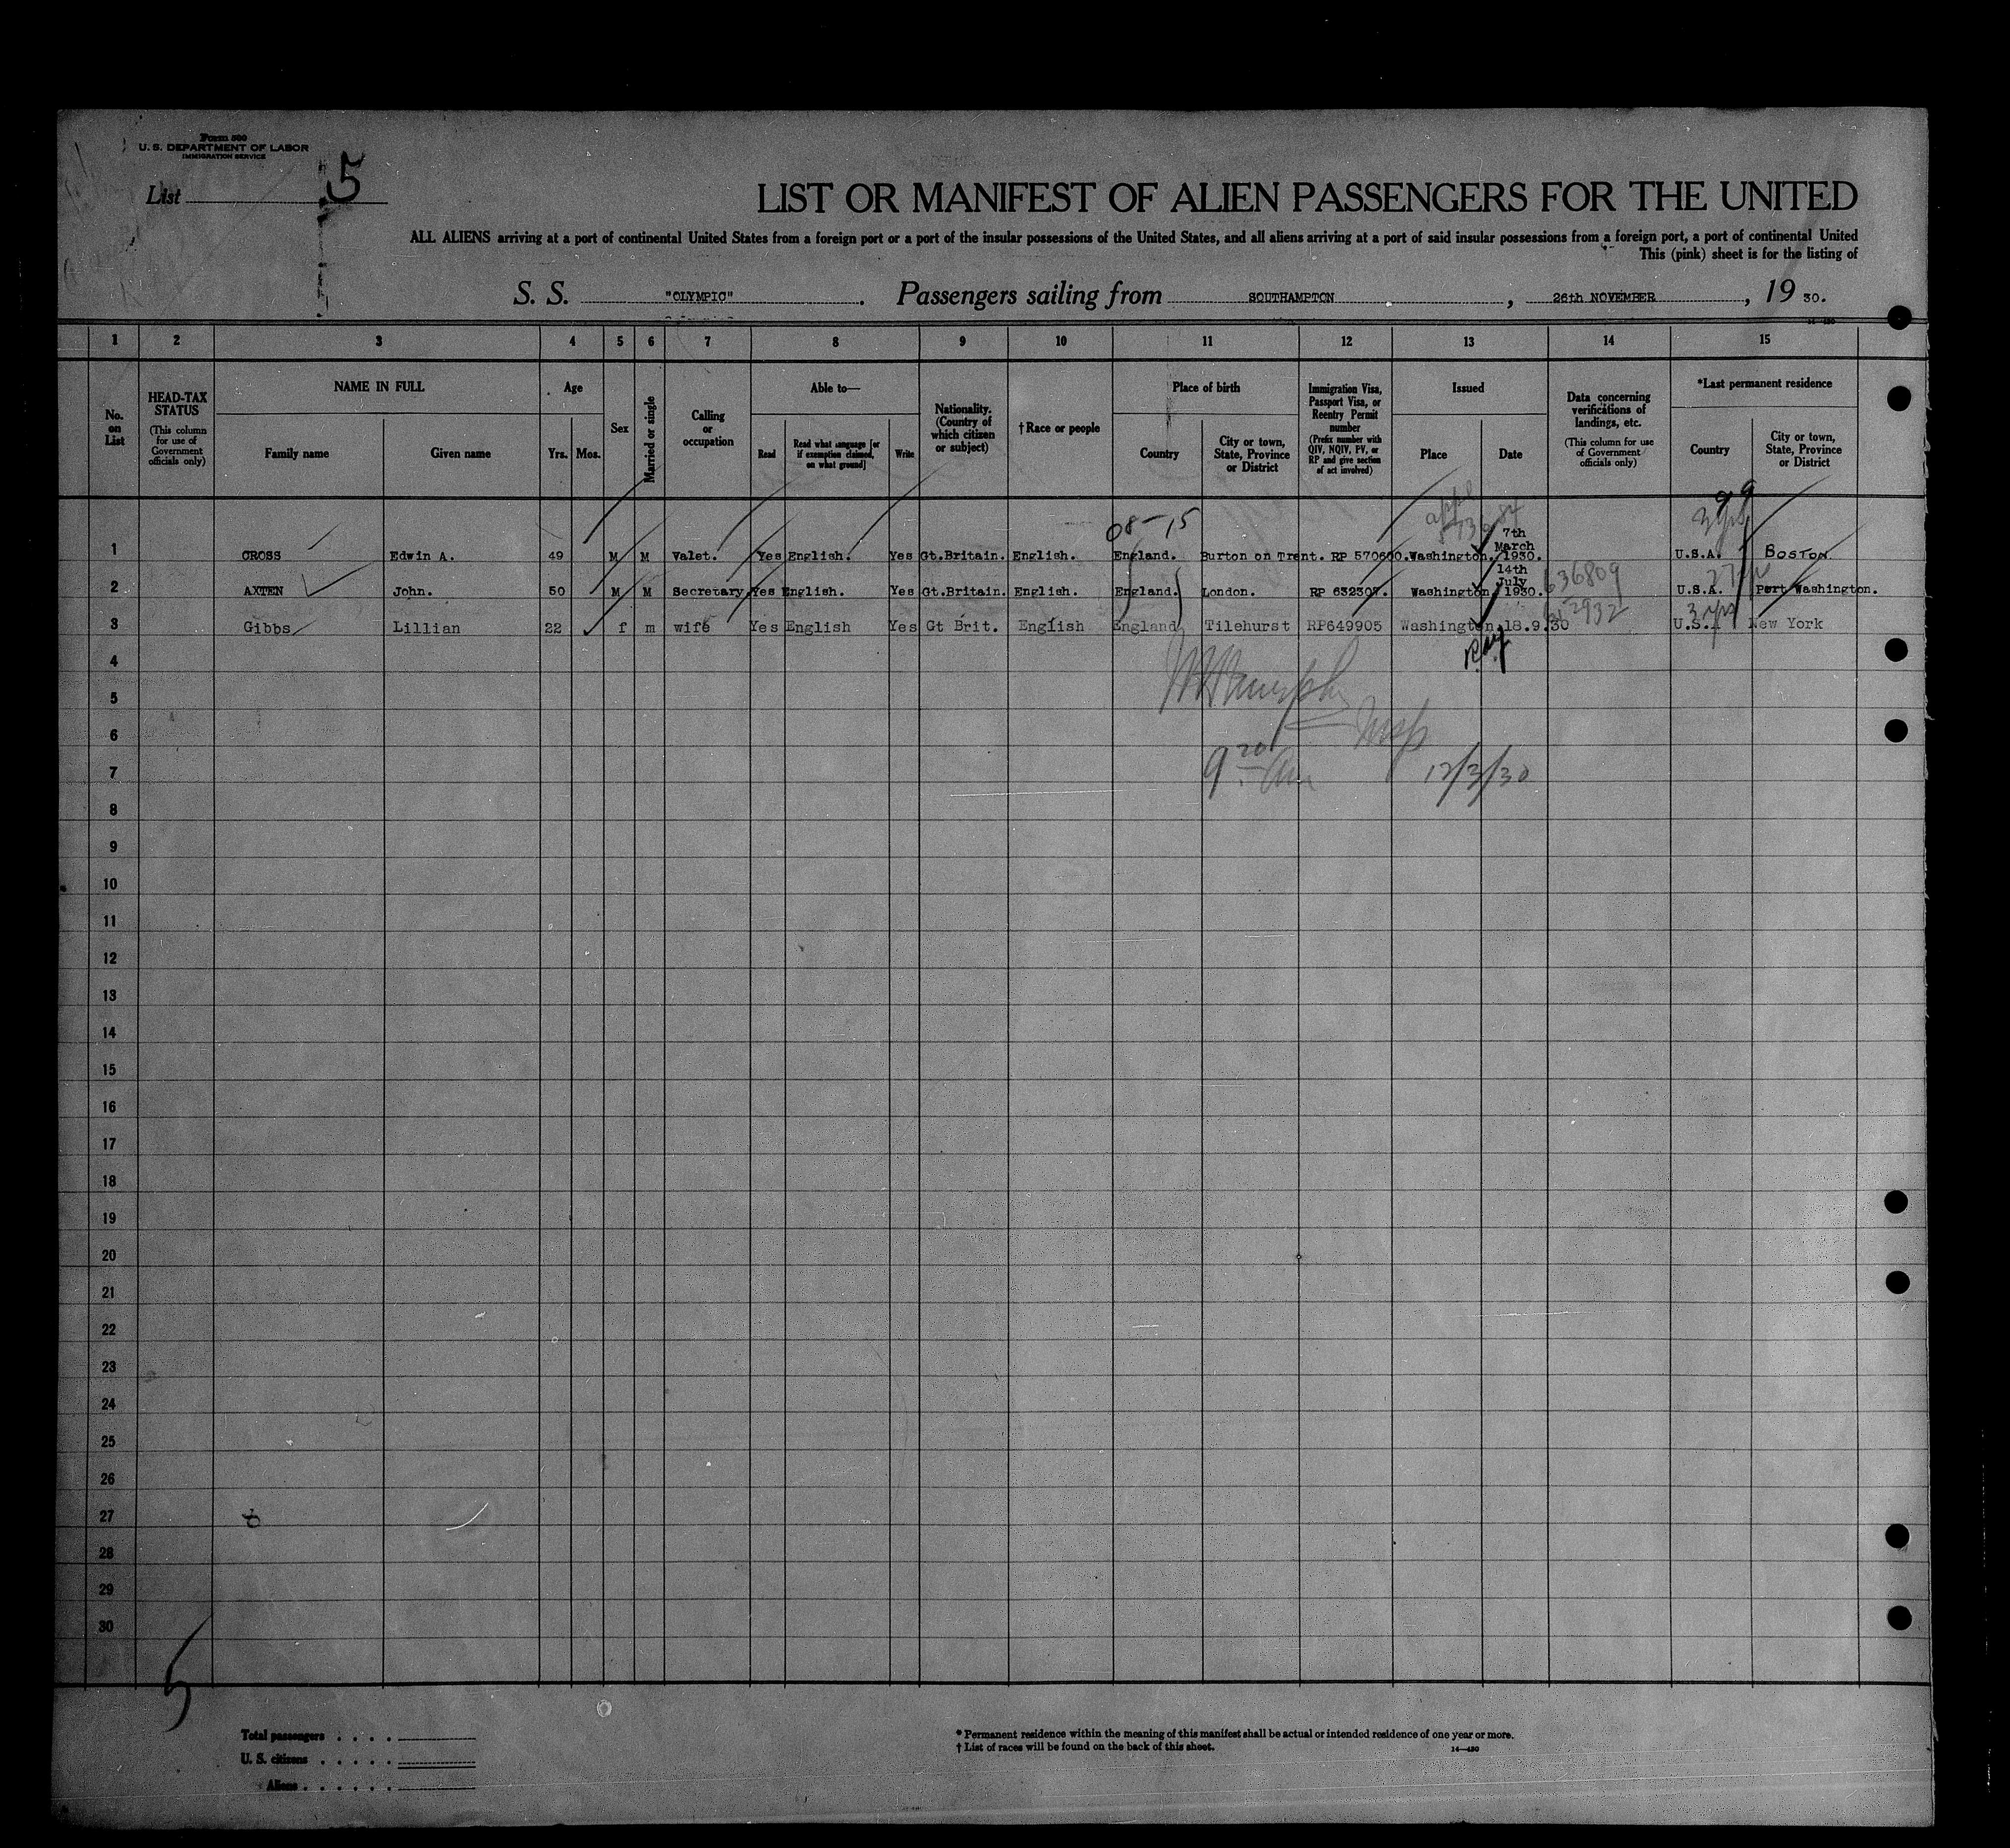 Form 500
U. S. DEPARTMENT OF LABOR
IMMIGRATION SERVICE
List 5
LIST OR MANIFEST OF ALIEN PASSENGERS FOR THE UNITED
ALL ALIENS arriving at a port of continental United States from a foreign port or a port of the insular possessions of the United States, and all aliens arriving at a port of said insular possessions from a foreign port, a port of continental United
This (pink) sheet is for the listing of
S. S. "OLYMPIC". Passengers sailing from SOUTHAMPTON, 26th NOVEMBER, 19 30.
1 2 3 4 5 6 7 8 9 10 11 12 13 14 15
No. on List
HEAD-TAX STATUS
(This column for use of Government officials only)
NAME IN FULL
Family name
Given name
Age
Yrs. Mos.
Sex
Married or single
Calling or occupation
Able to—
Read
Read what language [or if exemption claimed, on what ground]
Write
Nationality. (Country of which citizen or subject)
†Race or people
Place of birth
Country
City or town, State, Province or District
Immigration Visa, Passport Visa, or Reentry Permit number
(Prefix number with QIV, NQIV, PV, or RP and give section of act involved)
Issued
Place
Date
Data concerning verifications of landings, etc.
(This column for use of Government officials only)
*Last permanent residence
Country
City or town, State, Province or District
08-15
1 CROSS Edwin A. 49 M M Valet. Yes English. Yes Gt.Britain. English. England. Burton on Trent. RP 570600. Washington. 7th March 1930. U.S.A. BOSTON
2 AXTEN John. 50 M M Secretary. Yes English. Yes Gt.Britain. English. England. London. RP 632307. Washington. 14th July 1930. 636809 U.S.A. Port Washington.
3 Gibbs Lillian 22 f m wife Yes English Yes Gt Brit. English England Tilehurst RP649905 Washington 18.9.30 3 yrs New York
4
5
6
7
9 20 am 12/3/30
8
9
10
11
12
13
14
15
16
17
18
19
20
21
22
23
24
25
26
27
28
29
30
5
Total passengers . . . .
U. S. citizens . . . . .
Aliens . . . . . .
* Permanent residence within the meaning of this manifest shall be actual or intended residence of one year or more.
† List of races will be found on the back of this sheet.
14—430